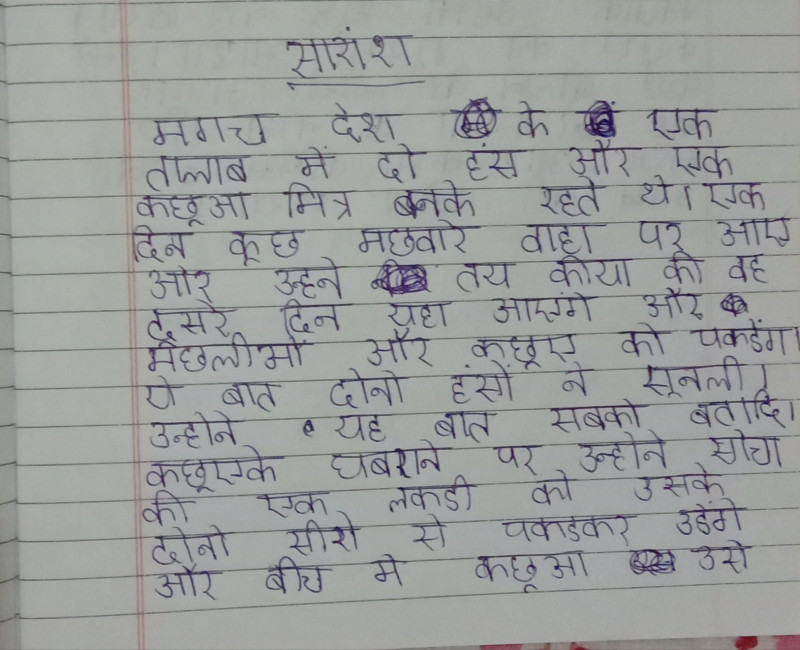 सारांश
मगध देश के एक
तालाब में दो हंस और एक
कछूआ मित्र बनके रहते थे। एक
दिन कूछ मछवारे वाहा पर आए
और उन्हने तय कीया की वह
दुसरे दिन यहा आएंगे और
मछलीओ और कछूए को पकडेंगे।
ये बात दोनो हंसों ने सूनली।
उन्होने यह बात सबको बतादि।
कछूएके घबराने पर उन्होने सोचा
की एक लकडी को उसके
दोनो सीरो से पकडकर उडेंगे
और बीच मे कछूआ उसे